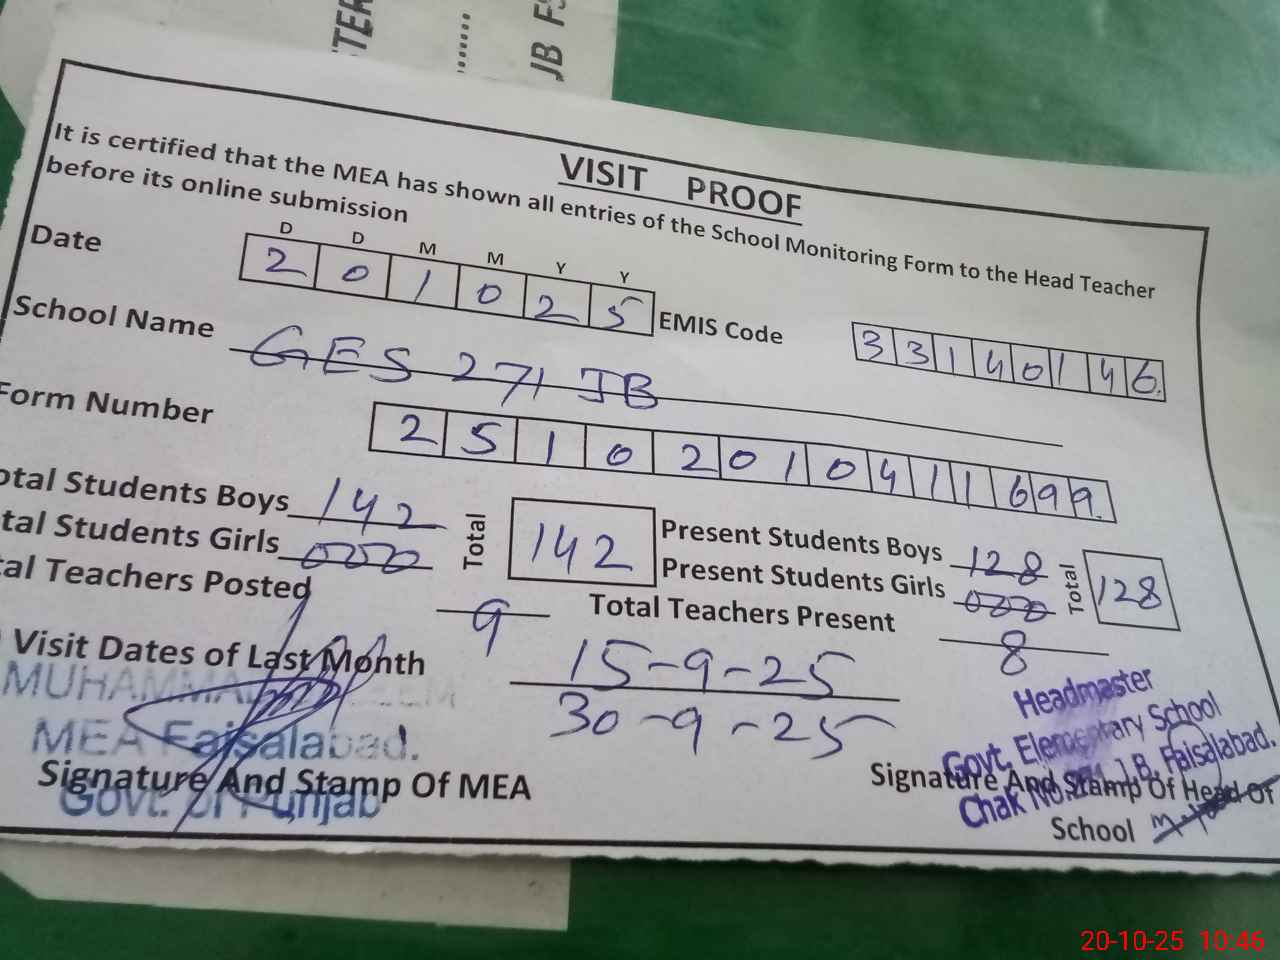 TER
.......
JB FS
VISIT PROOF
It is certified that the MEA has shown all entries of the School Monitoring Form to the Head Teacher
before its online submission
D D M M Y Y
Date 2 0 1 0 2 5 EMIS Code 3 3 1 4 0 1 4 6.
School Name GES 271 JB
Form Number 2 5 1 0 2 0 1 0 4 1 1 6 9 9.
otal Students Boys 142 Total 142 Present Students Boys 128 Total 128
tal Students Girls 000 Present Students Girls 000
tal Teachers Posted 9 Total Teachers Present 8
Visit Dates of Last Month 15-9-25
30-9-25
MUHAMMAD
MEA Faisalabad.
Govt. of Punjab
Signature And Stamp Of MEA
Headmaster
Govt. Elementary School
Chak No. J.B. Faisalabad.
Signature And Stamp Of Head Of
School
20-10-25 10:46